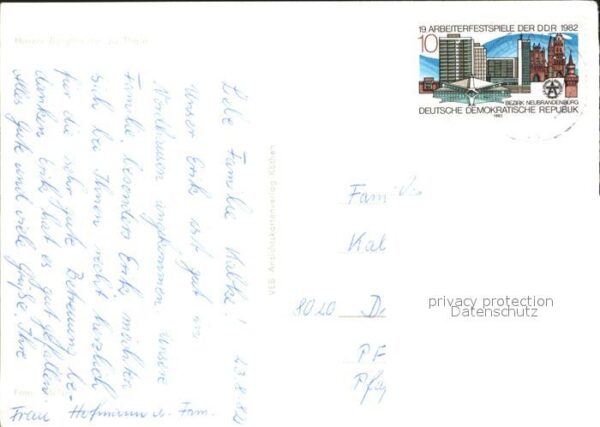 19. ARBEITERFESTSPIELE DER DDR 1982
10
BEZIRK NEUBRANDENBURG
DEUTSCHE DEMOKRATISCHE REPUBLIK
1982
23.8.82
Liebe Familie Kalbe!
Unser Erik ist gut in
Nordhausen angekommen. Unsere
Familie, besonders Erik, möchten
sich bei Ihnen recht herzlich
für die sehr gute Betreuung be-
danken. Erik hat es gut gefallen.
Alles Gute und viele Grüße, Ihre
Frau Hofmann u. Fam.
VEB Ansichtskartenverlag Köthen
Famili
Kal
8020 D
PF
privacy protection
Datenschutz